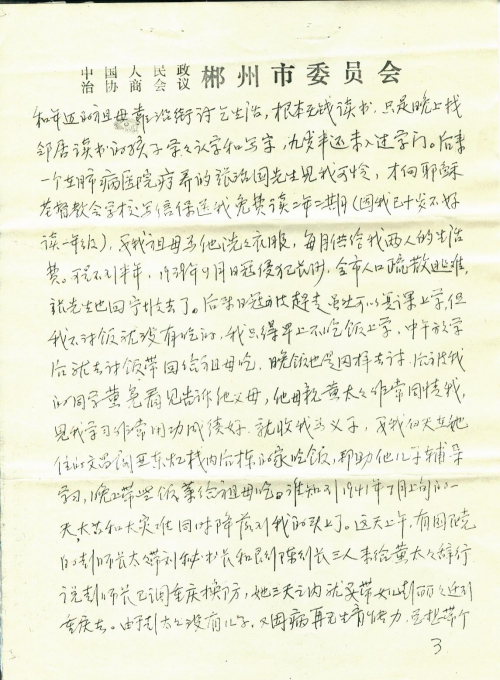 中国人民政治协商会议 郴州市委员会
和年迈的祖母靠沿街讨乞生活，根本无钱读书，只是晚上找
邻居读书的孩子学学认字和写字，九岁半还未入过学门。后来
一个在肺病医院疗养的张治国先生见我可怜，才向耶稣
基督教会学校写信保送我免费读二年二期（因我已十岁不好
读一年级），又我祖母为他洗洗衣服，每月供给我两人的生活
费。不到半年，日寇侵犯长沙，全市人口疏散避难，
张先生也回去了。后来日寇赶走虽然可以复课上学，但
我不讨饭就没有吃的，我只得早上不吃饭上学，中午放学
后就去讨饭带回给祖母吃，晚饭也是同样去讨，后被我
的同学黄看见告诉他父母，他母亲黄太太非常同情我，
见我学习非常用功成绩好，就收我为义子，又我白天在她
住的栈内后栋的家吃饭，帮助他儿子辅导
学习，晚上带些饭菜给祖母吃。谁知到1941年7月上旬的一
天，大喜和大灾难同时降落到我的头上了。这天上午，有国民党
的彭师长太太带副秘书长和长三人来给黄太太辞行
说彭师长已调重庆换防，她三天之内就要带女儿彭丽丽迁到
重庆去。由于彭太太没有儿子，又因病再无生育能力，总想带个
3